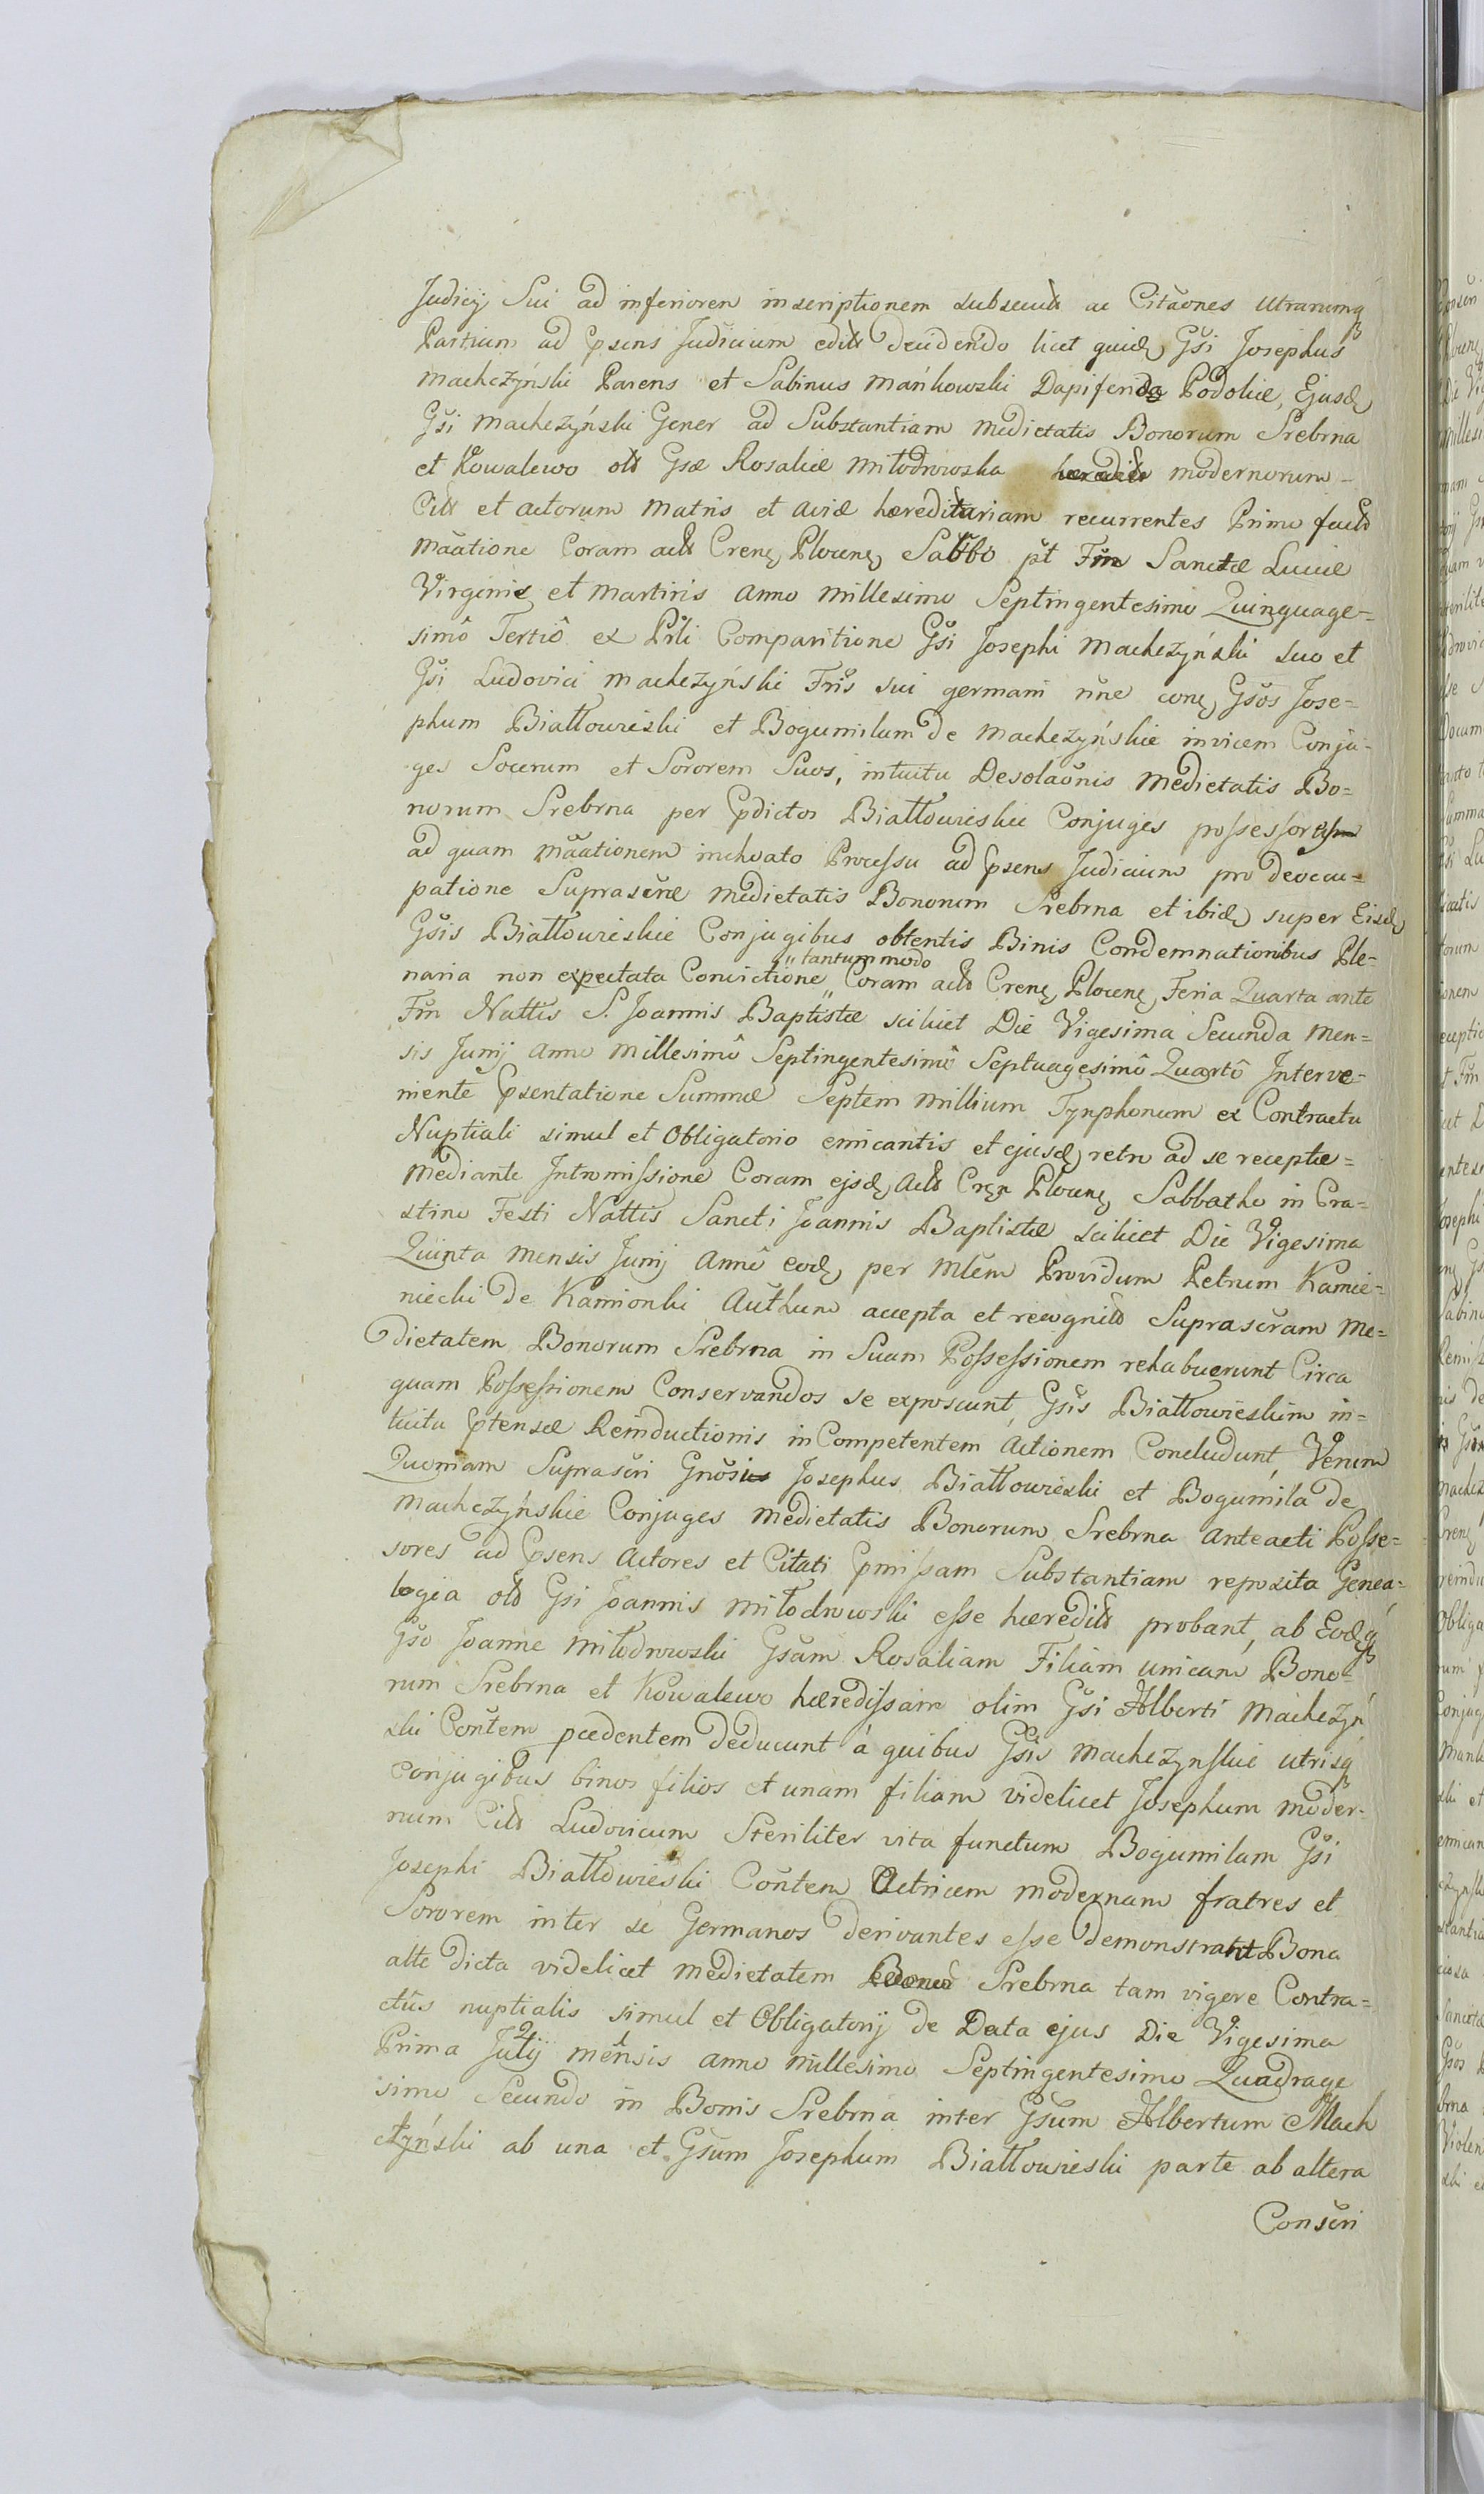 Judicij Sui ad inferiorem inscriptionem subsecut ac Citãones utrarumq
Partium ad Psens Judicium edit Decidendo licet quid Gsi Josephus
Machczyński Parens et Sabinus Mańkowski Dapiferida Podoliæ, Ejusd
Gsi Machczyński Gener ad Substantiam Medietatis Bonorum Srebrna
et Kowalewo old Gsæ Rosaliæ Miłodrowska hæredit modernorum
Citt et actorum Matris et aviæ hæreditariam recurrentes Primo facta
Mãatione Coram actis Cren Plocen Sabbo pt Fm Sanctæ Luciæ
Virginis et Martiris Anno Millesimo Septingentesimo Quinquage=
simô Tertiô ex Prli Comparitione Gsi Josephi Machczyński suo et
Gsi Ludovici Machczyński Fris sui germani nne con Gsos Jose=
phum Białłowieski et Bogumilam de Machczyńskie invicem Conju=
ges Socerum et Sororem Suos, intuitu Desolaõnis Medietatis Bo=
norum Srebrna per Pdictos Białłowieskie Conjuges possessor
ad quam Mãationem inchoato Processu ad Psens Judicium pro deoccu=
patione Suprascræ Medietatis Bonorum Srebrna et ibid super Eisd
Gsis Białłowieskie Conjugibus obtentis Binis Condemnationibus Ple=
naria non expectata Convictione "tantummodo" Coram actis Cren Plocen Feria Quarta ante
Fm Nattis S. Joannis Baptistæ scilicet Die Vigesima Secunda Men=
sis Junij Anno Millesimô Septingentesimô Septuagesimô Quartô Interve=
niente Psentatione Summæ Septem Millium Tynphonum ex Contractu
Nuptiali simul et Obligatorio emicantis et ejusd retro ad se receptæ=
Mediante Intromissione Coram ejsd Actis Cren Plocen Sabbatho in Cra=
stino Festi Nattis Sancti Joannis Baptistæ scilicet Die Vigesima
Quinta Mensis Junij Annô eod per Mlem Providum Petrum Kamie=
niecki de Kamionki Authum accepta et recognita Suprascram Me=
dietatem Bonorum Srebrna in Suam Possessionem rehabuerunt Circa
quam Possessionem Conservandos se exposcunt, Gsis Białłowieskim in=
tuitu Ptensæ Reinductionis in Competentem Actionem Concludunt, Verum
Quoniam Suprascri Gnosi Josephus Białłowieski et Bogumiła de
Machczyńskie Conjuges Medietatis Bonorum Srebrna Anteacti Posse=
sores ad Psens Actores et Citati Pmissam Substantiam reposita Genea=
logia old Gsi Joannis Miłodrowski esse hæredit probant, ab Eodq
Gso Joanne Miłodrowski Gsam Rosaliam Filiam unicam Bono=
rum Srebrna et Kowalewo hæredissam olim Gsi Alberti Machczyń
ski Contem pcedentem deducunt á quibus Gsis Machczynskie utrisq
Conjugibus binos filios et unam filiam videlicet Josephum moder=
num Citt Ludovicum Steriliter vita functum Bogumilam Gsi
Josephi Białłowieski Contem Actricem modernam fratres et
Sororem inter se Germanos derivantes esse demonstrant Bona
alte dicta videlicet Medietatem Srebrna tam vigore Contra=
ctus nuptialis simul et Obligatorij de Data ejus Die Vigesima
Prima Julij Mensis anno Millesimo Septingentesimo Quadrage
simo Secundo in Bonis Srebrna inter Gsum Albertum Mach
czyński ab una et Gsum Josephum Białłowieski parte ab altera
Conscri